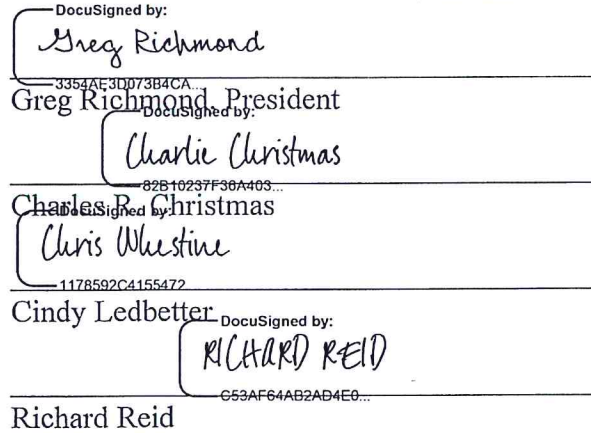 DocuSigned by:
Greg Richmond
3354AE3D073B4CA...
Greg Richmond, President
DocuSigned by:
Charlie Christmas
82B10237F36A403...
Charles R. Christmas
DocuSigned by:
Chris Whestine
1178592C4155472...
Cindy Ledbetter
DocuSigned by:
RICHARD REID
C53AF64AB2AD4E0...
Richard Reid